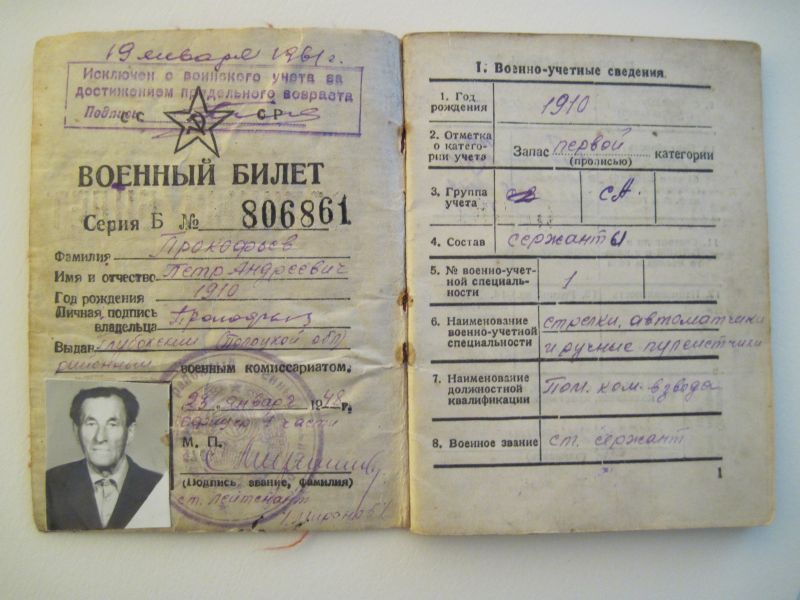 19 января 1961 г.
Исключен с воинского учета за
достижением предельного возраста
Подпись
СС СР
ВОЕННЫЙ БИЛЕТ
Серия Б № 806861
Фамилия Прокофьев
Имя и отчество Петр Андреевич
Год рождения 1910
Личная подпись
владельца
Выдан Глубокским Полоцкой обл.
районным военным комиссариатом.
23 января 1948 г.
М. П.
(Подпись, звание, фамилия)
ст. лейтенант
1. Военно-учетные сведения.
1. Год
рождения 1910
2. Отметка
о катего-
рии учета Запас первой категории
(прописью)
3. Группа
учета СА
4. Состав сержанты
5. № военно-учет-
ной специаль-
ности 1
6. Наименование
военно-учетной
специальности стрелки, автоматчики
и ручные пулеметчики
7. Наименование
должностной
квалификации Пом. ком. взвода
8. Военное звание ст. сержант
1